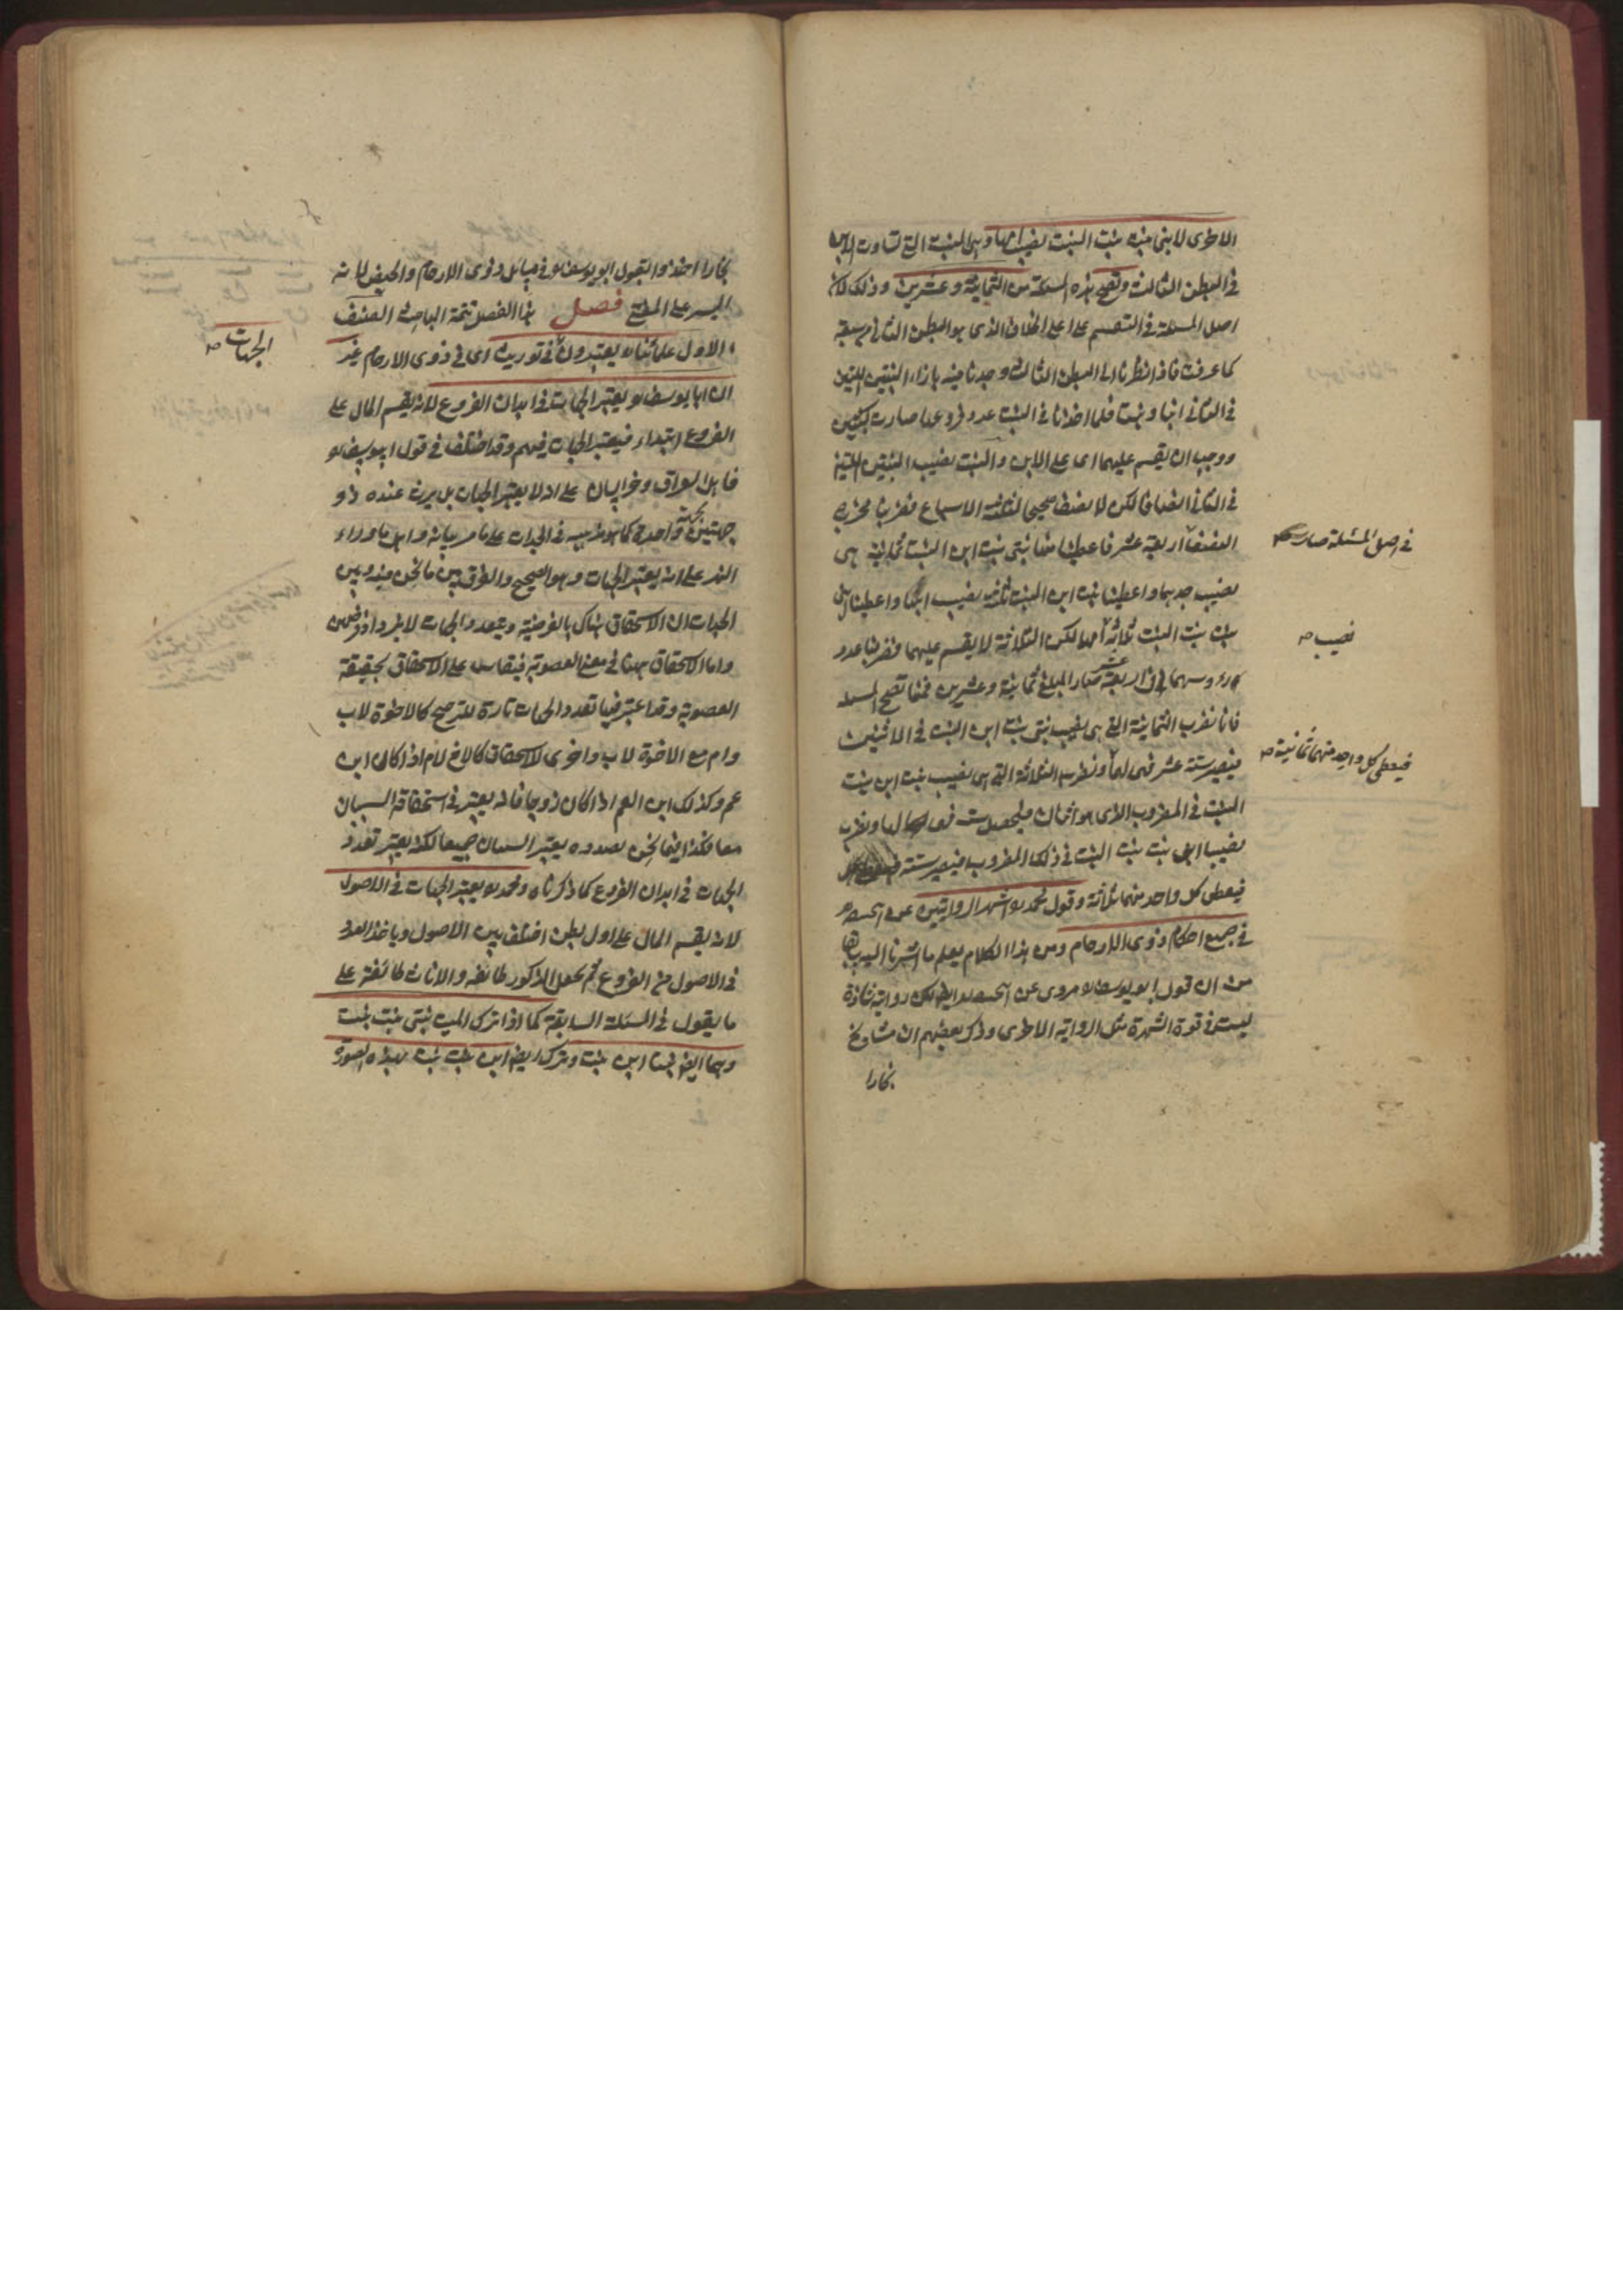 الاخرى لابنى بنت بنت البنت نصيب امها وهى البنت التى تساوت الابن
فى البطن الثالث وتصح هذه المسئلة من الثمانية وعشرين وذلك لان
اصل المسئلة فى التقسيم على اعلى الخلاف الذى هو البطن الثانى سبعة
كما عرفت فاذا نظرنا الى البطن الثالث وجدنا فيه بازاء البنتين اللتين
فى الثانى ابنا وبنتا فلما اخذنا فى البنت عدد فروعها صارت كبنتين
ووجب ان يقسم عليهما اى على الابن والبنت نصيب البنتين اللتين
فى الثانى انصافا لكن لا نصف صحيحا لثلاثة الاسباع فضربنا مخرج
النصف اربعة عشر فاعطينا منها بنتى بنت ابن البنت ثمانية هى
نصيب جدهما واعطينا بنت ابن البنت ثلاثة نصيب ابيها واعطينا ابنى
بنت بنت البنت ثلاثة امهما لكن الثلاثة لا يقسم عليهما فضربنا عدد
رؤسهما فى اربعة عشر صار المبلغ ثمانية وعشرين فمنها تصح المسئلة
فانا نضرب الثمانية التى هى نصيب بنتى بنت ابن البنت فى الاثنين
فيصير ستة عشر فهى لهما ونضرب الثلاثة التى هى نصيب بنت ابن بنت
البنت فى المضروب الذى هو اثنان فيحصل ستة فهى لها ونضرب
نصيب ابنى بنت بنت البنت فى ذلك المضروب فيصير ستة
فيعطى كل واحد منهما ثلاثة وقول محمد اشهر الروايتين عن
فى جميع احكام ذوى الارحام ومن هذا الكلام يعلم ما اشرنا اليه سابقا
من ان قول ابو يوسف مروى عن ايضا لكن رواية شاذة
ليست فى قوة الشهرة مثل الرواية الاخرى وذكر بعضهم ان مشايخ
بخارا
فى اصل المسئلة صار
نصيب
فيعطى كل واحد منهما ثمانية
بخارا اخذوا بقول ابو يوسف فى مسائل ذوى الارحام والحيض لانه
اليسر على المفتى فصل هذا الفصل تتمة لمباحث الصنف
الاول علمائنا يعتبرون فى توريث اى فى ذوى الارحام غير
ان ابا يوسف يعتبر الجهات فى ابدان الفروع لانه يقسم المال على
الفروع ابتداء فيعتبر الجهات فيهم وقد اختلف فى قول ابو يوسف
فاهل العراق وخراسان على انه لا يعتبر الجهات بل يرث عنده ذو
جهتين بجهة واحدة كما هو مذهبه فى الجدات على ما مر بيانه واهل ما وراء
النهر على انه يعتبر الجهات وهو الصحيح والفرق بين ما نحن فيه وبين
الجدات ان الاستحقاق هناك بالفرضية وبتعدد الجهات لا يزداد فرضهن
واما الاستحقاق ههنا فى معنى العصوبة فيقاس على الاستحقاق بحقيقة
العصوبة وقد اعتبر فيها تعدد الجهات تارة للترجيح كالاخوة لاب
وام مع الاخوة لاب واخرى للاستحقاق كالاخ لام اذا كان ابن
عم وكذلك ابن العم اذا كان زوجا فانه يعتبر فى استحقاقه السببان
معا فكذا فيما نحن بصدده يعتبر السببان جميعا لكنه يعتبر تعدد
الجهات فى ابدان الفروع كما ذكرناه ومحمد يعتبر الجهات فى الاصول
لانه يقسم المال على اول بطن اختلف بين الاصول وياخذ العدد
فى الاصول من الفروع ثم يجعل الذكور طائفة والاناث طائفة على
ما يقول فى المسئلة السابقة كما اذا ترك الميت بنتى بنت بنت
وهما ايضا بنتا ابن بنت وترك ايضا ابن بنت بنت بهذه الصورة
الجهات